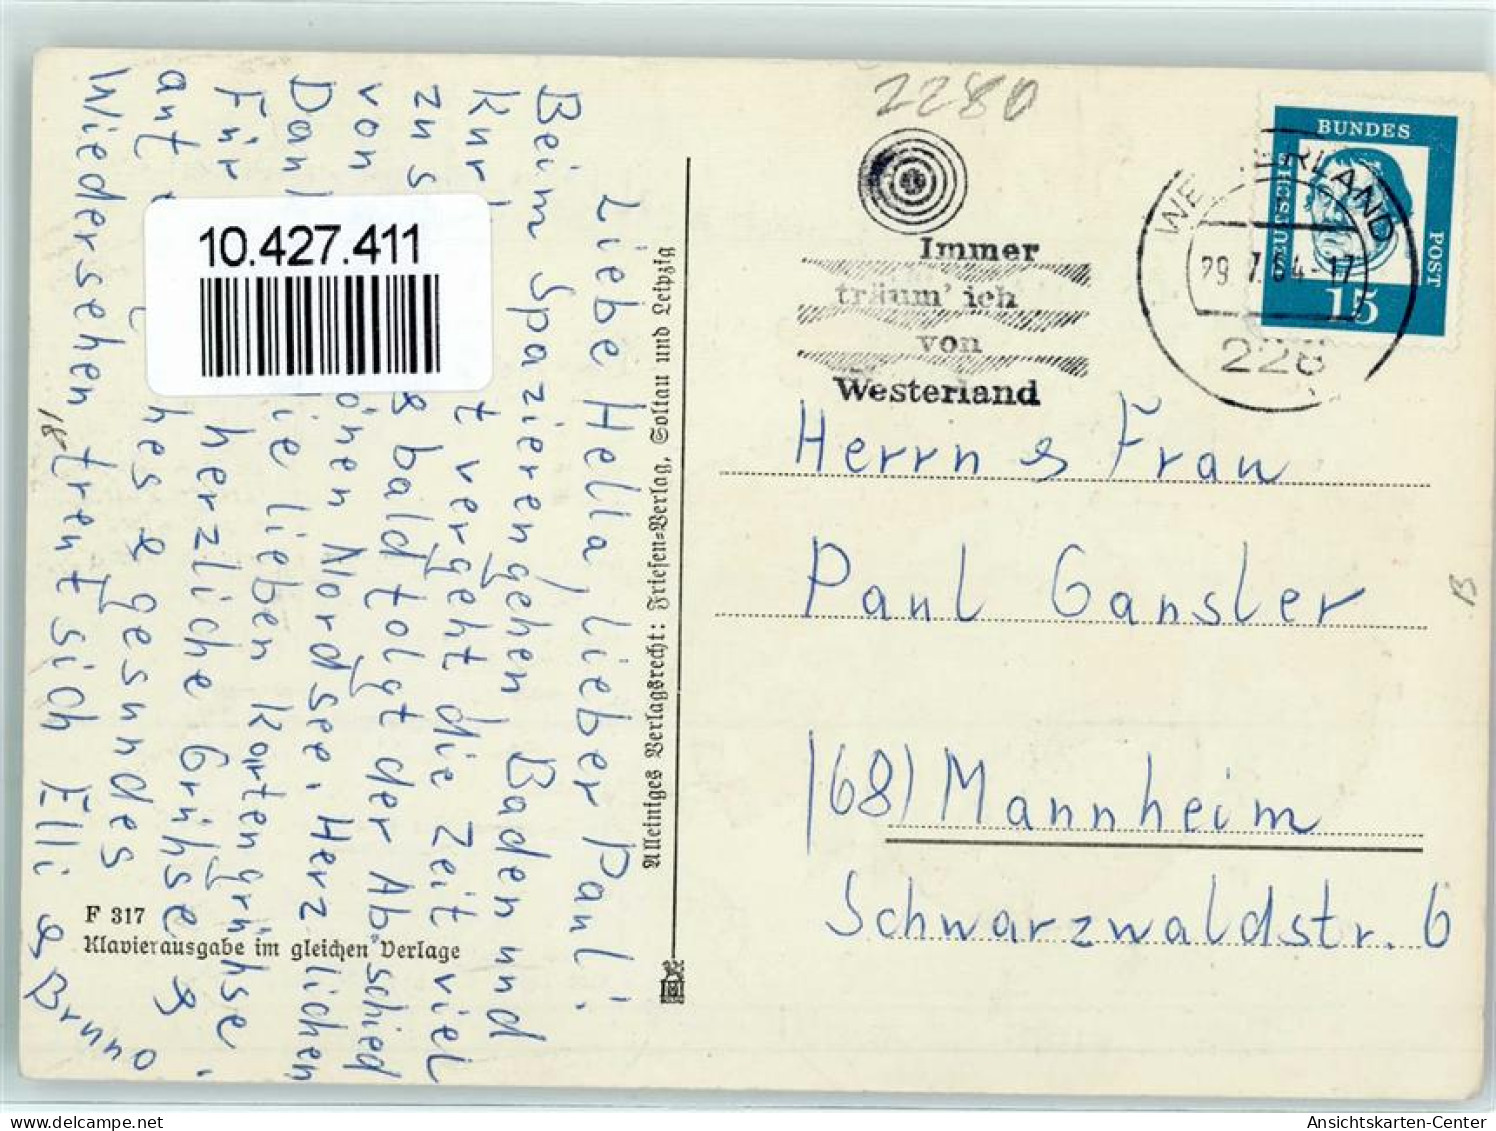 2280
BUNDES
DEUTSCHE
POST
15
WESTERLAND
29.7.64-17
228
Immer
träum' ich
von
Westerland
Herrn & Frau
Paul Gansler
(68) Mannheim
Schwarzwaldstr. 6
B
Alleiniges Verlagsrecht: Friesen=Verlag, Soltau und Leipzig
Liebe Hella, lieber Paul!
Beim Spazierengehen, Baden und
Kur t vergeht die Zeit viel
zu s & bald folgt der Abschied
von önen Nordsee. Herzlichen
Dank ie lieben Kartengrühse
Für herzliche Grühse &
auf hes & gesundes
Wiedersehen freut sich Elli & Bruno
18
10.427.411
F 317
Klavierausgabe im gleichen Verlage
Ansichtskarten-Center